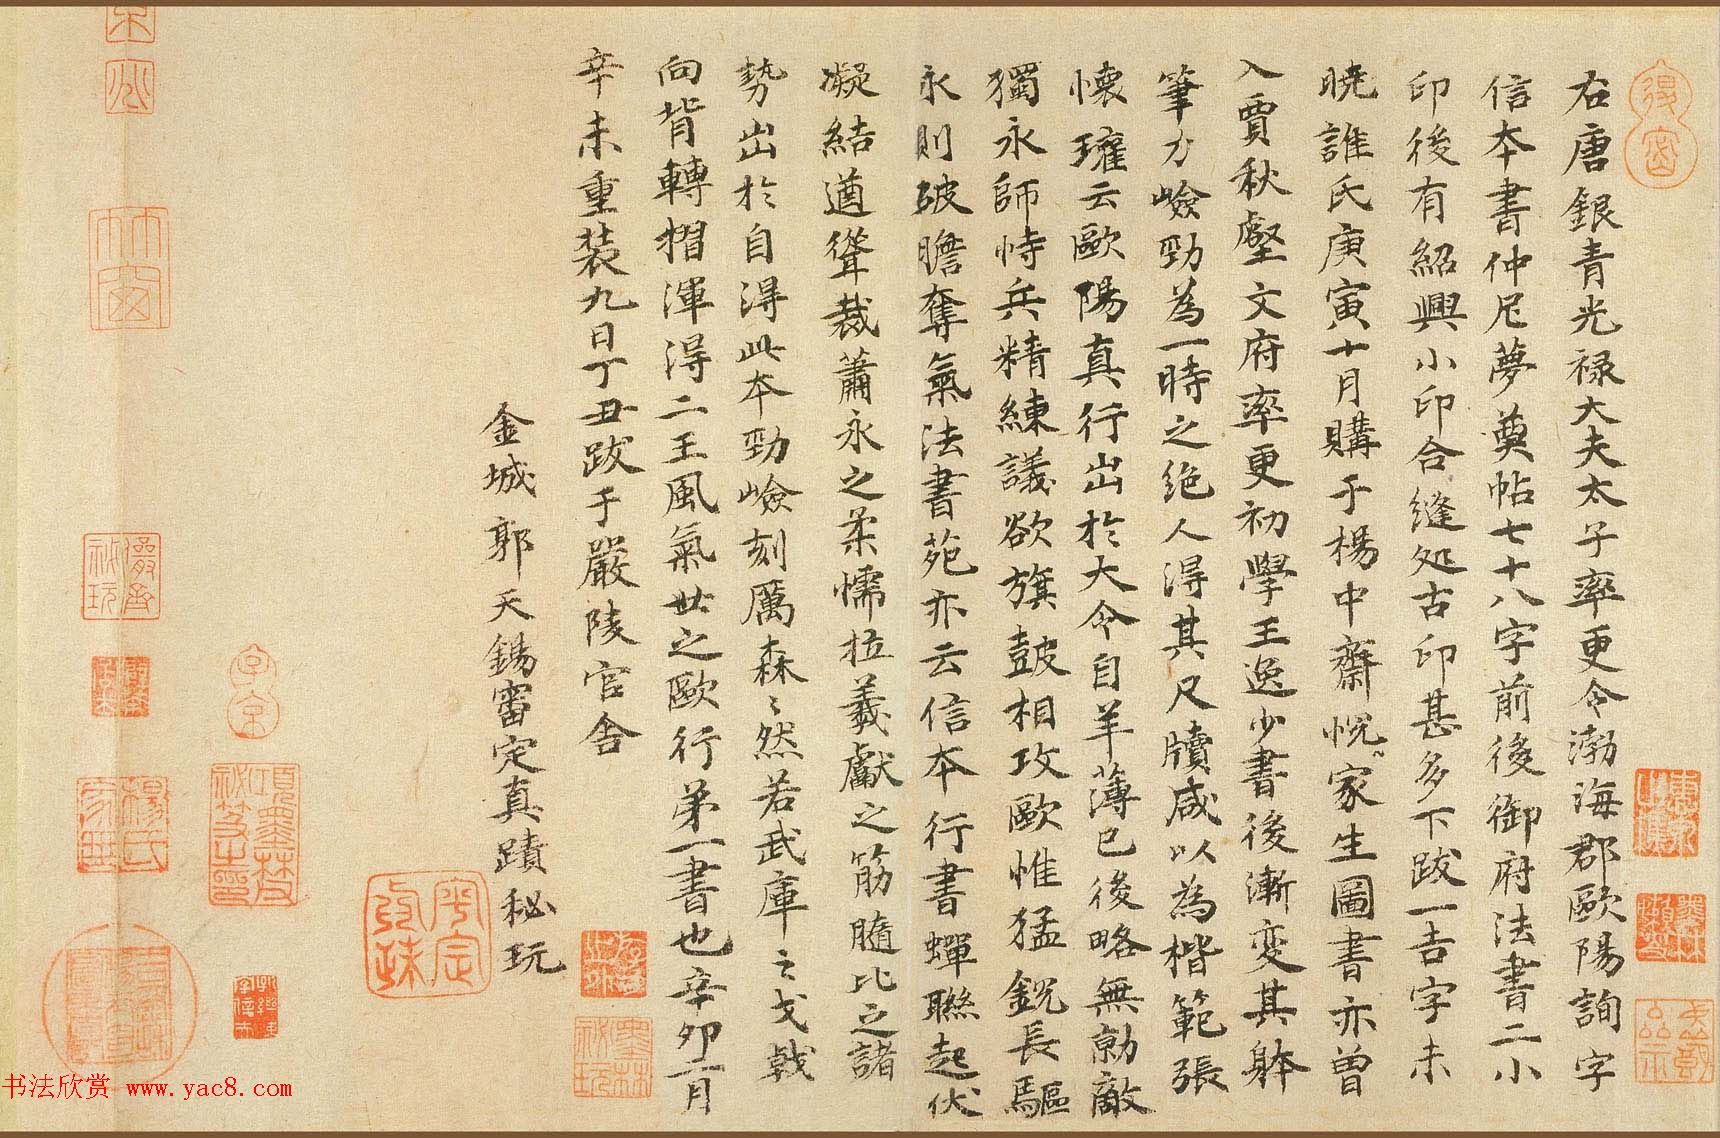 右唐銀青光禄大夫太子率更令渤海郡歐陽詢字
信本書仲尼夢奠帖七十八字前後御府法書二小
印後有紹興小印合縫処古印甚多下跋一吉字未
曉誰氏庚寅十月購于楊中齋悦家生圖書亦曽
入賈秋壑文府率更初學王逸少書後漸變其躰
筆力嶮勁為一時之絶人得其尺牘咸以為楷範張
懷瓘云歐陽真行出於大令自羊薄已後略無勍敵
獨永師恃兵精練議欲旗鼓相攻歐惟猛鋭長驅
永則破膽奪氣法書苑亦云信本行書蟬聯起伏
凝結遒聳裁蕭永之柔懦拉羲獻之筋髓比之諸
勢出於自得此本勁嶮刻厲森〻然若武庫之戈戟
向背轉摺渾得二王風氣世之歐行第一書也辛卯二月
辛未重装九日丁丑跋于嚴陵官舍
金城郭天錫審定真蹟秘玩
項墨林父
祕笈之印
子京
平定
墨林
祕玩
楊氏
书法欣赏 www.yac8.com